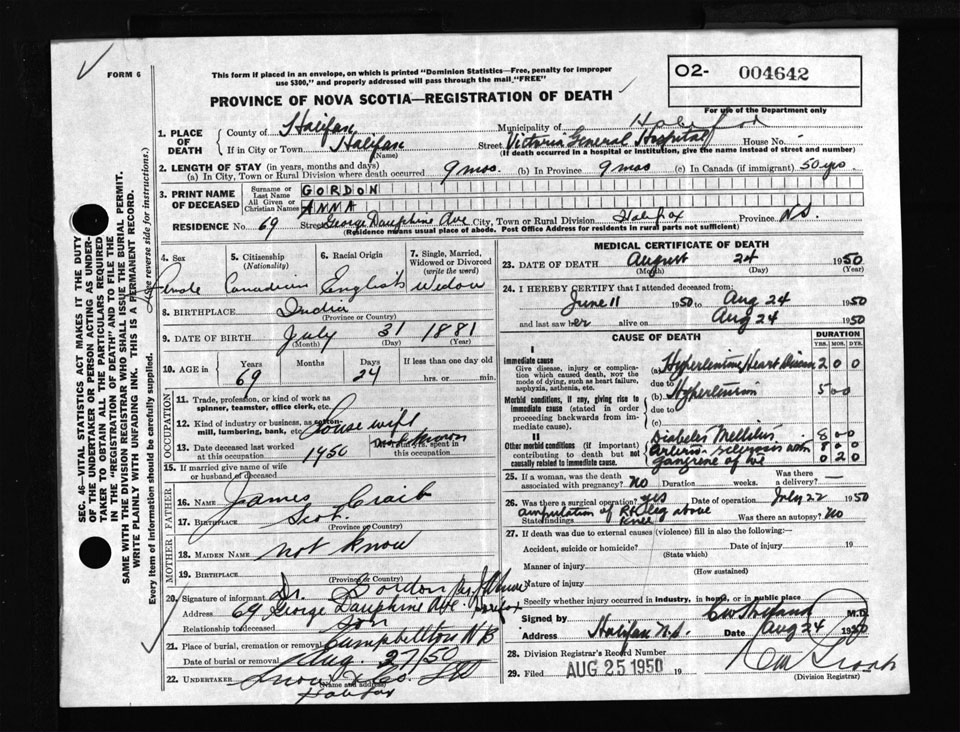 FORM 6
This form if placed in an envelope, on which is printed "Dominion Statistics—Free, penalty for improper
use $300," and properly addressed will pass through the mail "FREE"
O2- 004642
For use of the Department only
PROVINCE OF NOVA SCOTIA—REGISTRATION OF DEATH
1. PLACE OF DEATH
County of Halifax Municipality of
If in City or Town Halifax (Name) Street Victoria General Hospital House No. -
(If death occurred in a hospital or institution, give the name instead of street and number)
2. LENGTH OF STAY (in years, months and days)
(a) In City, Town or Rural Division where death occurred 9 mos. (b) In Province 9 mos (c) In Canada (if immigrant) 50 yrs
3. PRINT NAME OF DECEASED
Surname or Last Name GORDON
All Given or Christian Names ANNA
RESIDENCE No. 69 Street George Dauphine Ave City, Town or Rural Division Halifax Province N.S.
(Residence means usual place of abode. Post Office Address for residents in rural parts not sufficient)
4. Sex 5. Citizenship (Nationality) 6. Racial Origin 7. Single, Married, Widowed or Divorced (write the word)
Female Canadian English Widow
8. BIRTHPLACE India
(Province or Country)
9. DATE OF BIRTH July 31 1881
(Month) (Day) (Year)
10. AGE in Years Months Days If less than one day old
69 24 hrs. or min.
OCCUPATION
11. Trade, profession, or kind of work as
spinner, teamster, office clerk, etc.
12. Kind of industry or business, as cotton-
mill, lumbering, bank, etc. House wife
13. Date deceased last worked at this occupation 1950
spent in this occupation not known
15. If married give name of wife
or husband of deceased
FATHER
16. NAME James Craib
17. BIRTHPLACE Scot.
(Province or Country)
MOTHER
18. MAIDEN NAME not know
19. BIRTHPLACE
(Province or Country)
20. Signature of informant Dr. Gordon
Address 69 George Dauphine Ave. Halifax
Relationship to deceased Son
21. Place of burial, cremation or removal Campbellton N B
Date of burial or removal Aug. 27/50
22. UNDERTAKER Snow & Co. Ltd
(Name and address)
Halifax
MEDICAL CERTIFICATE OF DEATH
23. DATE OF DEATH August 24 1950
(Month) (Day) (Year)
24. I HEREBY CERTIFY that I attended deceased from:
June 11 1950 to Aug 24 1950
and last saw her alive on Aug 24 1950
CAUSE OF DEATH DURATION
YRS. MOS. DYS.
I
Immediate cause
Give disease, injury or complication which caused death, not the mode of dying, such as heart failure, asphyxia, asthenia, etc.
(a) Hypertensive Heart Disease 2 0 0
due to
Morbid conditions, if any, giving rise to immediate cause (stated in order proceeding backwards from immediate cause).
(b) Hypertension 5 0 0
due to
(c)
II
Other morbid conditions (if important) contributing to death but not causally related to immediate cause.
Diabetes Mellitus 8 0 0
Arterio-sclerosis with 8 0 0
gangrene of toe 0 2 0
25. If a woman, was the death associated with pregnancy? No Duration weeks. Was there a delivery? —
26. Was there a surgical operation? yes Date of operation July 22 1950
State findings amputation of Rt leg above knee Was there an autopsy? No
27. If death was due to external causes (violence) fill in also the following:—
Accident, suicide or homicide? Date of injury 19
(State which)
Manner of injury
(How sustained)
Nature of injury
Specify whether injury occurred in industry, in home, or in public place
Signed by M.D.
Address Halifax N.S. Date Aug 24 1950
28. Division Registrar's Record Number
29. Filed AUG 25 1950 19
(Division Registrar)
SEC. 46—VITAL STATISTICS ACT MAKES IT THE DUTY
OF THE UNDERTAKER OR PERSON ACTING AS UNDER-
TAKER TO OBTAIN ALL THE PARTICULARS REQUIRED
IN THE "REGISTRATION OF DEATH" AND TO FILE THE
SAME WITH THE DIVISION REGISTRAR WHO SHALL ISSUE THE BURIAL PERMIT.
WRITE PLAINLY WITH UNFADING INK. THIS IS A PERMANENT RECORD.
Every item of information should be carefully supplied. (See reverse side for instructions.)